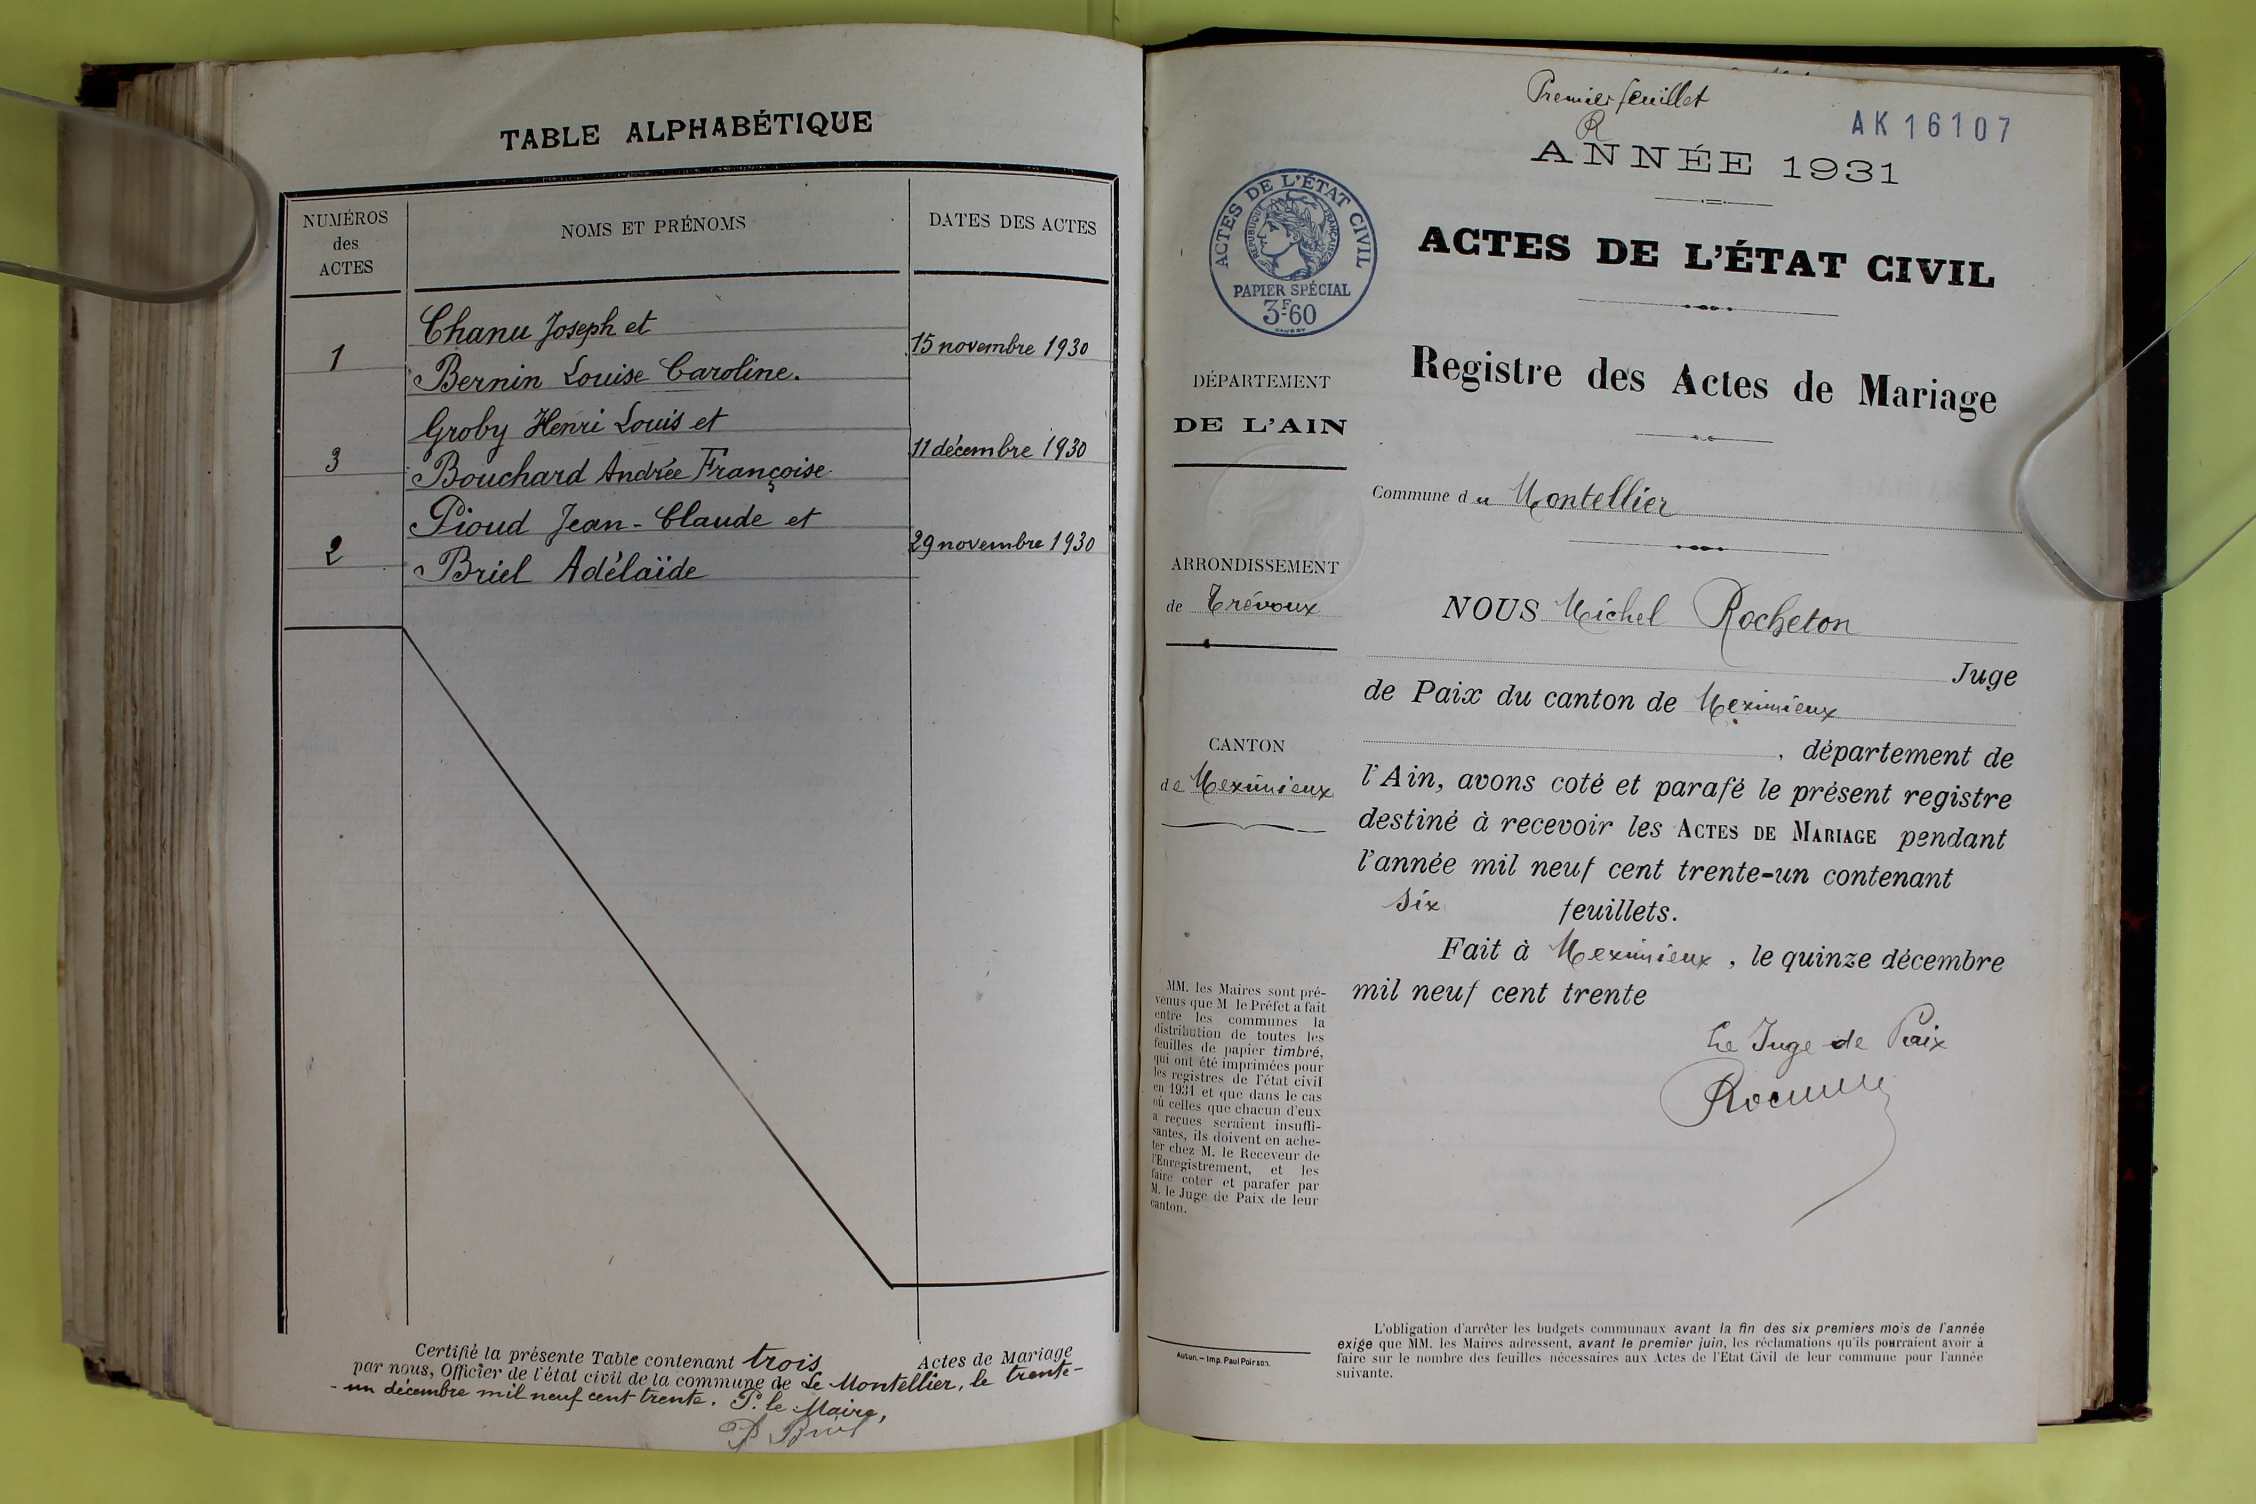 TABLE ALPHABÉTIQUE
NUMÉROS
des
ACTES
NOMS ET PRÉNOMS
DATES DES ACTES
Chanu Joseph et
1
15 novembre 1930
Bernin Louise Caroline.
Groby Henri Louis et
3
11 décembre 1930
Bouchard Andrée Françoise
Pioud Jean-Claude et
2
29 novembre 1930
Briel Adélaïde
Certifié la présente Table contenant trois Actes de Mariage
par nous, Officier de l'état civil de la commune de Le Montellier, le trente-
-un décembre mil neuf cent trente. P. le Maire,
Premier feuillet
R
AK 16107
ANNÉE 1931
ACTES DE L'ÉTAT CIVIL
RÉPUBLIQUE FRANÇAISE
PAPIER SPÉCIAL
3F60
ACTES DE L'ÉTAT CIVIL
Registre des Actes de Mariage
DÉPARTEMENT
DE L'AIN
Commune du Montellier
ARRONDISSEMENT
de Trévoux
NOUS Michel Rocheton
Juge
de Paix du canton de Meximieux
CANTON
de Meximieux
, département de
l'Ain, avons coté et parafé le présent registre
destiné à recevoir les ACTES DE MARIAGE pendant
l'année mil neuf cent trente-un contenant
six feuillets.
Fait à Meximieux, le quinze décembre
mil neuf cent trente
Le Juge de Paix
MM. les Maires sont pré-
venus que M. le Préfet a fait
entre les communes la
distribution de toutes les
feuilles de papier timbré,
qui ont été imprimées pour
les registres de l'état civil
en 1931 et que dans le cas
où celles que chacun d'eux
a reçues seraient insuffi-
santes, ils doivent en ache-
ter chez M. le Receveur de
l'Enregistrement, et les
faire coter et parafer par
M. le Juge de Paix de leur
canton.
Autun. — Imp. Paul Poirson.
L'obligation d'arrêter les budgets communaux avant la fin des six premiers mois de l'année
exige que MM. les Maires adressent, avant le premier juin, les réclamations qu'ils pourraient avoir à
faire sur le nombre des feuilles nécessaires aux Actes de l'Etat Civil de leur commune pour l'année
suivante.